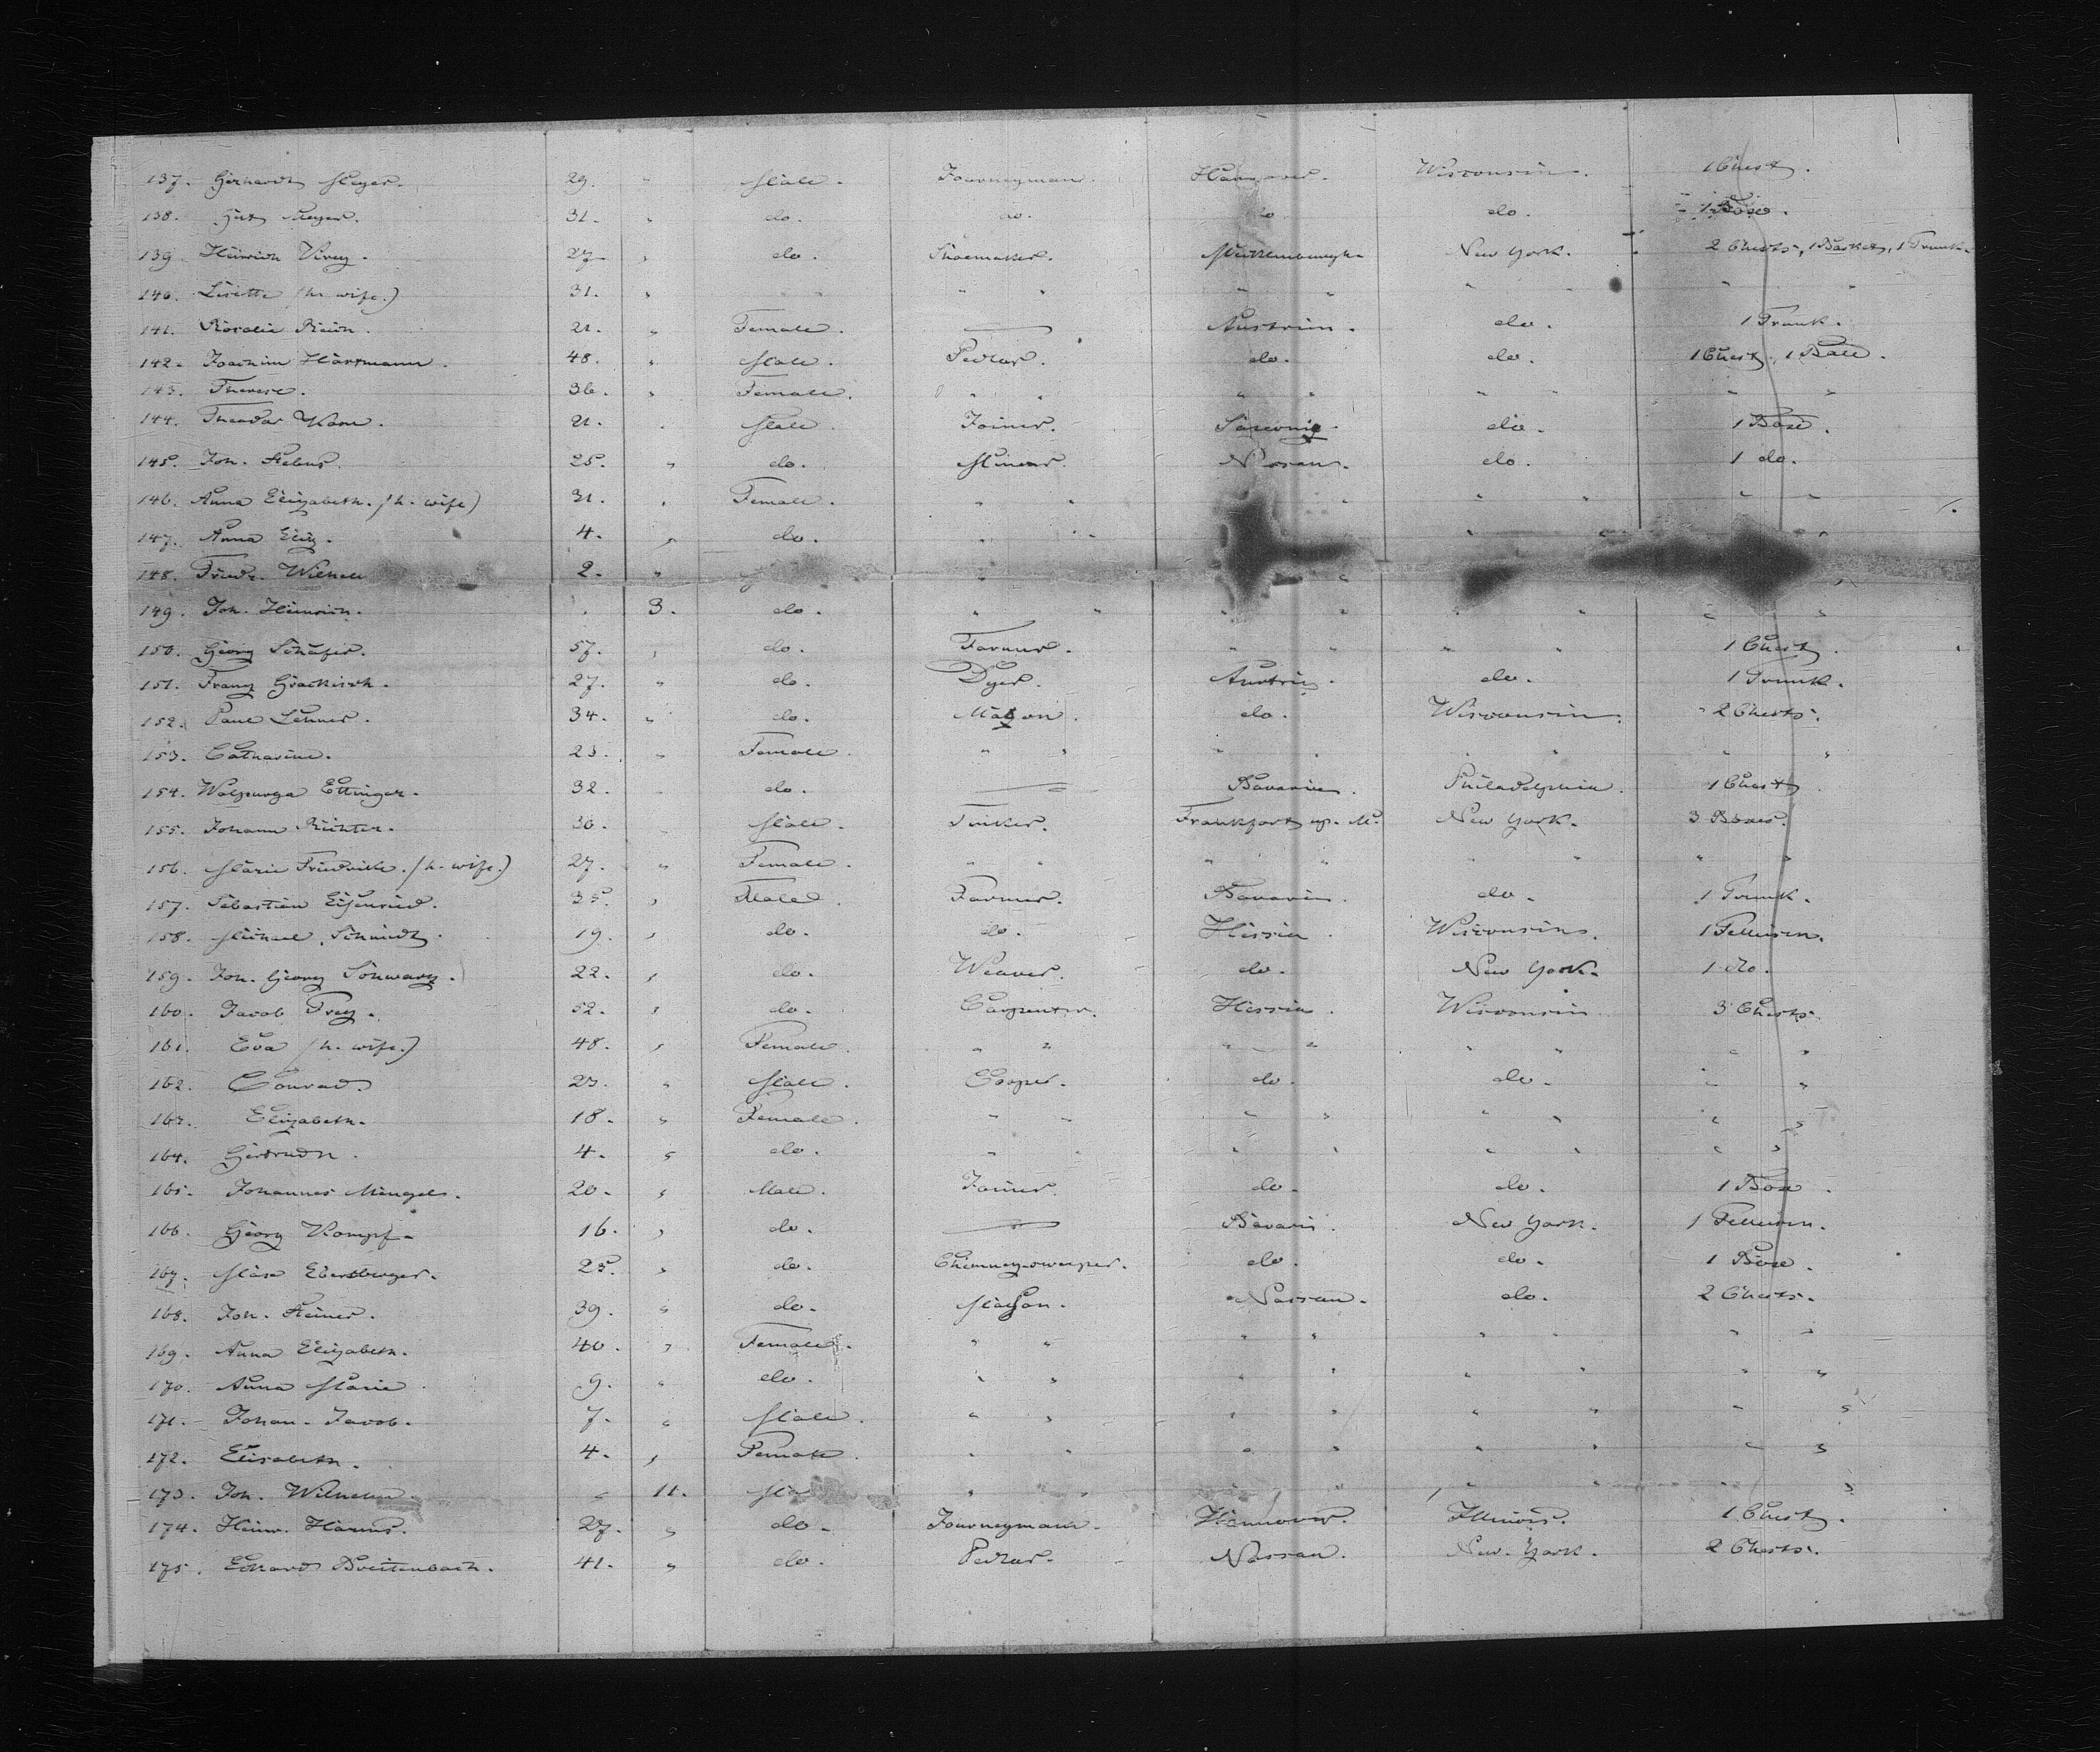 137. Gerhardt Meyer. 29. " Male. Journeyman. Hannover. Wisconsin. 1 Chest.
138. Gert Meyer. 31. " do. do. do do. 1 Box.
139. Heinrich 27. " do. Shoemaker. New York. 2 Chests, 1 Basket, 1 Trunk.
140. Lisette (h. wife.) 31. " " " " " " " " "
141. Rosalie 21. " Female. — Austria. do. 1 Trunk.
142. Joachim Hartmann. 48. " Male. Pedlar. do. do. 1 Chest, 1 Bale.
143. Therese. 36. " Female. " " " " " " " "
144. Theodor 21. " Male. Joiner. do. 1 Box.
145. Joh. 25. " do. Nassau. do. 1 do.
146. Anna Elizabeth. (h. wife) 31. " Female. " " " " " " "
147. Anna Eliz. 4. " do. " " " " "
148. Friedr. 2. " " " "
149. Joh. Heinrich. " 3. do. " " " " " " "
150. Georg Schäfer. 57. " do. Farmer. " " " " 1 Chest.
151. Franz 27. " do. Dyer. Austria. do. 1 Trunk.
152. Paul Lehner. 34. " do. Mason. do. Wisconsin. 2 Chests.
153. Catharine. 23. " Female. " " " " " " " "
154. Walpurga Ettinger. 32. " do. — Bavaria. Philadelphia. 1 Chest.
155. Johann Richter. 30. " Male. Tinker. Frankfort o/. M. New York. 3 Boxes.
156. Marie Friedrike. (h. wife.) 27. " Female. " " " " " " " "
157. Sebastian Eisenried. 35. " Male. Farmer. Bavaria. do. 1 Trunk.
158. Michael Schmidt. 19. " do. do. Hessia. Wisconsin. 1 Felleisen.
159. Joh. Georg Schwarz. 22. " do. Weaver. do. New York. 1 do.
160. Jacob Frey. 52. " do. Carpenter. Hessia. Wisconsin 3 Chests.
161. Eva (h. wife.) 48. " Female. " " " " " " " "
162. Conrad. 23. " Male. Cooper. do. do. " "
163. Elizabeth. 18. " Female. " " " " " " " "
164. Gertrudh. 4. " do. " " " " " " " "
165. Johannes Mengel. 20. " Male. Joiner. do. do. 1 Box.
166. Georg Kompf. 16. " do. — Bavaria. New York. 1 Felleisen.
167. Ebersberger. 25. " do. Chimneysweeper. do. do. 1 Box.
168. Joh. 39. " do. Mason. Nassau. do. 2 Chests.
169. Anna Elizabeth. 40. " Female. " " " " " " " "
170. Anna Marie 9. " do. " " " " " " " "
171. Johan. Jacob. 7. " Male. " " " " " " " "
172. Elisabeth. 4. " Female. " " " " " " " "
173. Joh. Wilhelm. " 11. " " " " " " " "
174. Heinr. Harms. 27. " do. Journeymann. Hannover. Illinois. 1 Chest.
175. Eckard Breitenbach. 41. " do. Pedlar. Nassau. New York. 2 Chests.